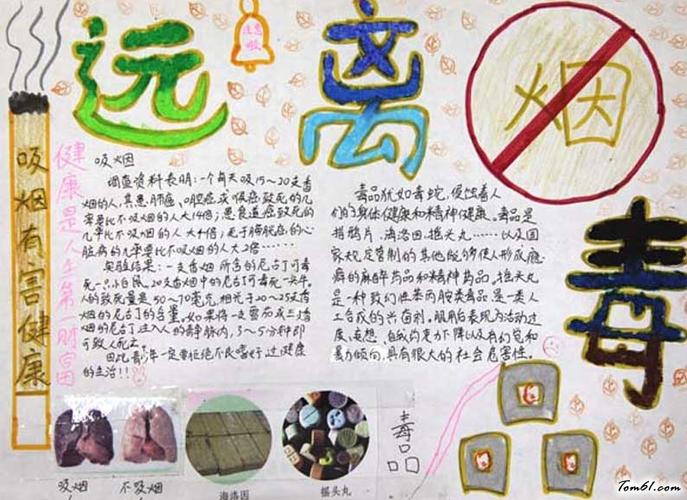 远离
毒品
注意
烟
吸烟有害健康
健康是人生第一财富
吸烟
调查资料表明:一个每天吸15～20支香
烟的人,其患肺癌,口腔癌或喉癌致死的几
率要比不吸烟的人大14倍;患食道癌致死的
几率比不吸烟的人大4倍;死于膀胱癌的
心
脏病的几率要比不吸烟的人大2倍……
实验结果:一支香烟所含的尼古丁可毒
死一只小白鼠,20支香烟中的尼古丁可毒死一头牛。
人的致死量是50～70毫克,相当于20～25支香
烟的尼古丁的含量。如果将一支雪茄或三支香
烟的尼古丁注入人的静脉内,3～5分钟即
可致人死亡。
因此青少年一定要拒绝不良嗜好过健康
的生活!!
毒品犹如毒蛇,侵蚀着人
们的身体健康和精神健康。毒品是
指鸦片、海洛因、摇头丸……以及国
家规定管制的其他能够使人形成瘾
癖的麻醉药品和精神药品,摇头丸
是一种致幻性苯丙胺类毒品,是一类人
工合成的兴奋剂。服用后表现为活动过
度、妄想、自我约束力下降以及有幻觉和
暴力倾向,具有很大的社会危害性。
吸烟
不吸烟
海洛因
摇头丸
毒品
Tom61.com